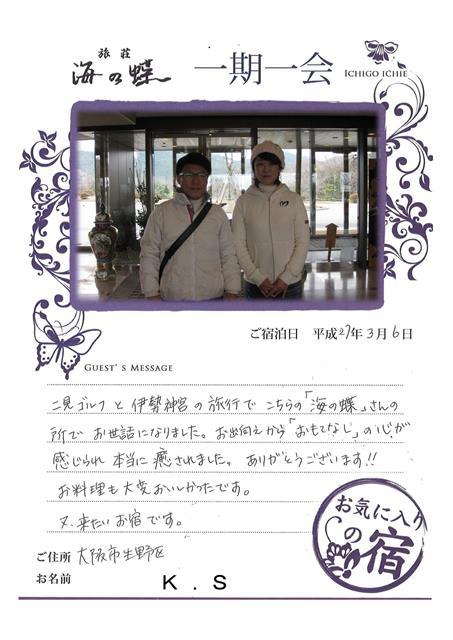 旅荘
海の蝶
一期一会
ICHIGO ICHIE
ご宿泊日 平成27年3月6日
GUEST'S MESSAGE
二見ゴルフと伊勢神宮の旅行でこちらの「海の蝶」さんの
所でお世話になりました。お出迎えから「おもてなし」の心が
感じられ本当に癒されました。ありがとうございます!!
お料理も大変おいしかったです。
又、来たいお宿です。
お気に入り
の宿
ご住所 大阪市生野区
お名前 K.S